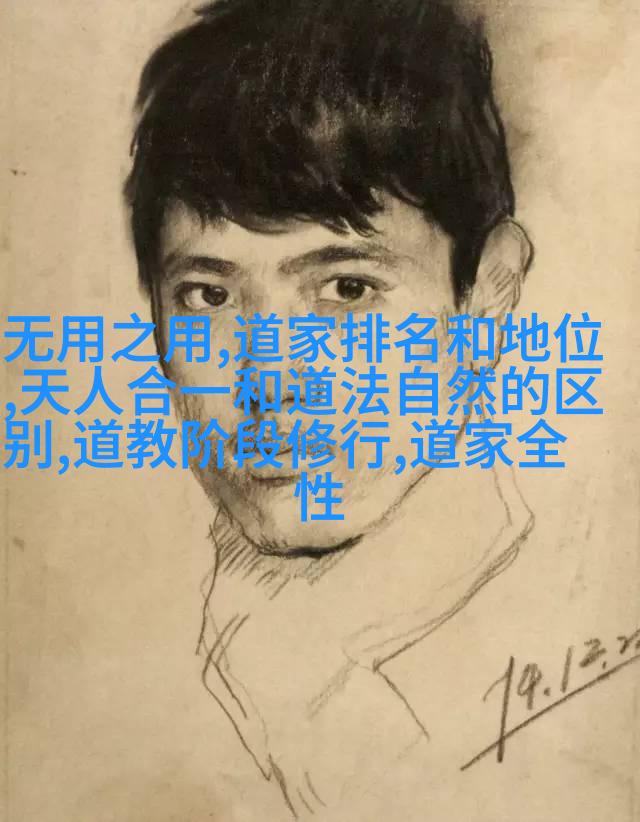 无用之用,道家排名和地位
,天人合一和道法自然的区
别,道教阶段修行,道家全
性